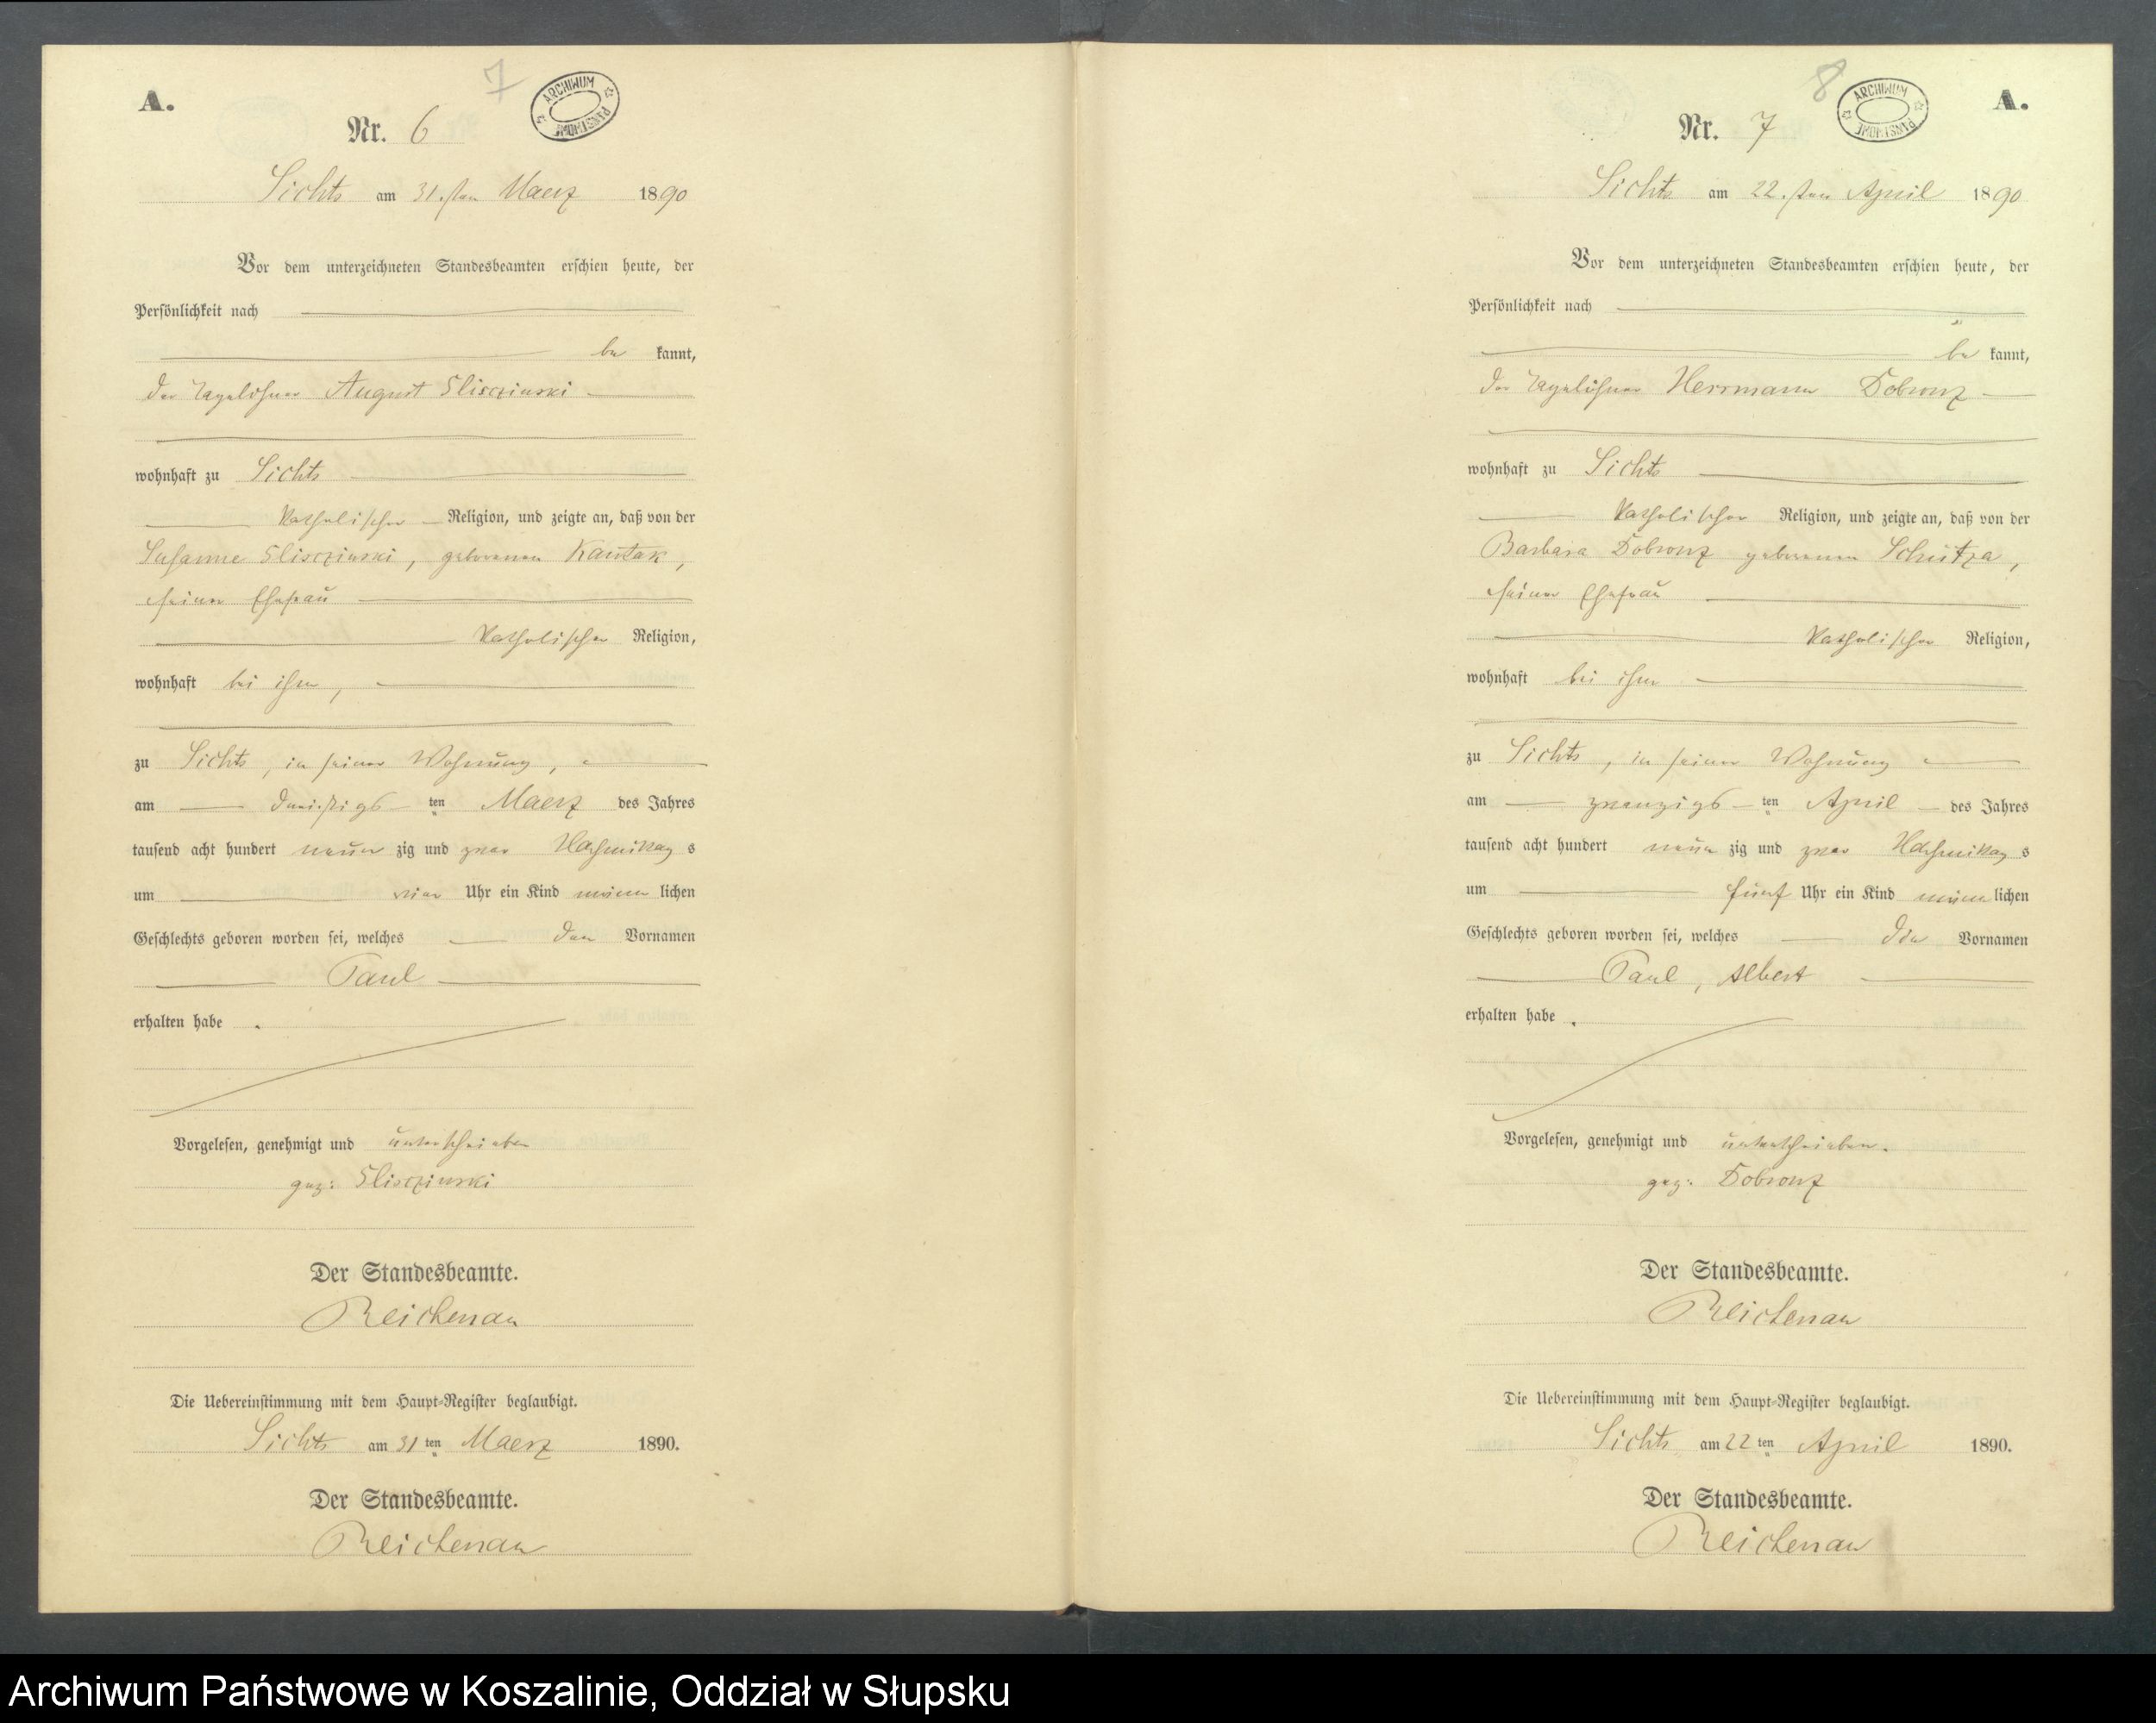 A.
7
ARCHIWUM PAŃSTWOWE
Nr. 6
Lichts am 31.sten Maerz 1890
Vor dem unterzeichneten Standesbeamten erschien heute, der
Persönlichkeit nach
be kannt,
der Tagelöhner August Slisczinski
wohnhaft zu Lichts
katholischer Religion, und zeigte an, daß von der
Susanne Slisczinski, geborenen Kautak,
seiner Ehefrau
katholischer Religion,
wohnhaft bei ihm,
zu Lichts, in seiner Wohnung,
am dreißigs ten Maerz des Jahres
tausend acht hundert neun zig und zwar Nachmittag s
um vier Uhr ein Kind männ lichen
Geschlechts geboren worden sei, welches den Vornamen
Paul
erhalten habe.
Vorgelesen, genehmigt und unterschrieben
gez: Slisczinski
Der Standesbeamte.
Reichenau
Die Uebereinstimmung mit dem Haupt-Register beglaubigt.
Lichts am 31 ten Maerz 1890.
Der Standesbeamte.
Reichenau
8
ARCHIWUM PAŃSTWOWE
A.
Nr. 7
Lichts am 22.sten April 1890
Vor dem unterzeichneten Standesbeamten erschien heute, der
Persönlichkeit nach
be kannt,
der Tagelöhner Herrmann Dobronz
wohnhaft zu Lichts
katholischer Religion, und zeigte an, daß von der
Barbara Dobronz geborenen Schutza,
seiner Ehefrau
katholischer Religion,
wohnhaft bei ihm
zu Lichts, in seiner Wohnung
am zwanzigs ten April des Jahres
tausend acht hundert neun zig und zwar Nachmittag s
um fünf Uhr ein Kind männ lichen
Geschlechts geboren worden sei, welches die Vornamen
Paul, Albert
erhalten habe.
Vorgelesen, genehmigt und unterschrieben.
gez: Dobronz
Der Standesbeamte.
Reichenau
Die Uebereinstimmung mit dem Haupt-Register beglaubigt.
Lichts am 22 ten April 1890.
Der Standesbeamte.
Reichenau
Archiwum Państwowe w Koszalinie, Oddział w Słupsku